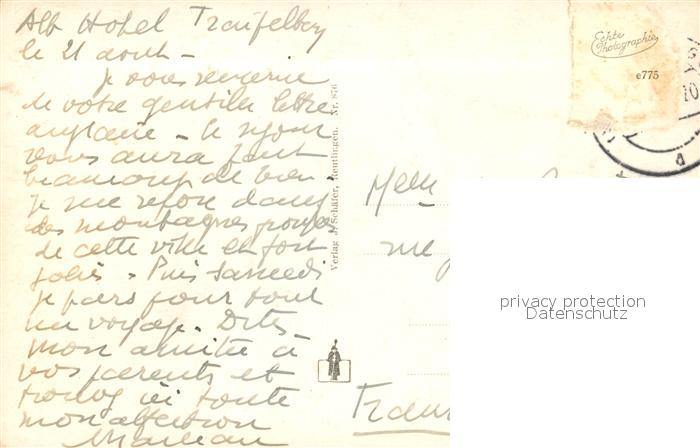 Alb Hotel Traifelberg
le 21 aout -
Je vous remercie
de votre gentille lettre
anglaise - le séjour
vous aura fait
beaucoup de bien
Je me repose dans
des montagnes proches
de cette ville et fort
jolies. Puis samedi
je pars pour tout
un voyage. Dites
mon amitié à
vos parents et
trouvez ici toute
mon affection
Verlag J. Schäfer, Reutlingen. Nr. 876
Echte
Photographie
e775
Melle
rue
France
privacy protection
Datenschutz